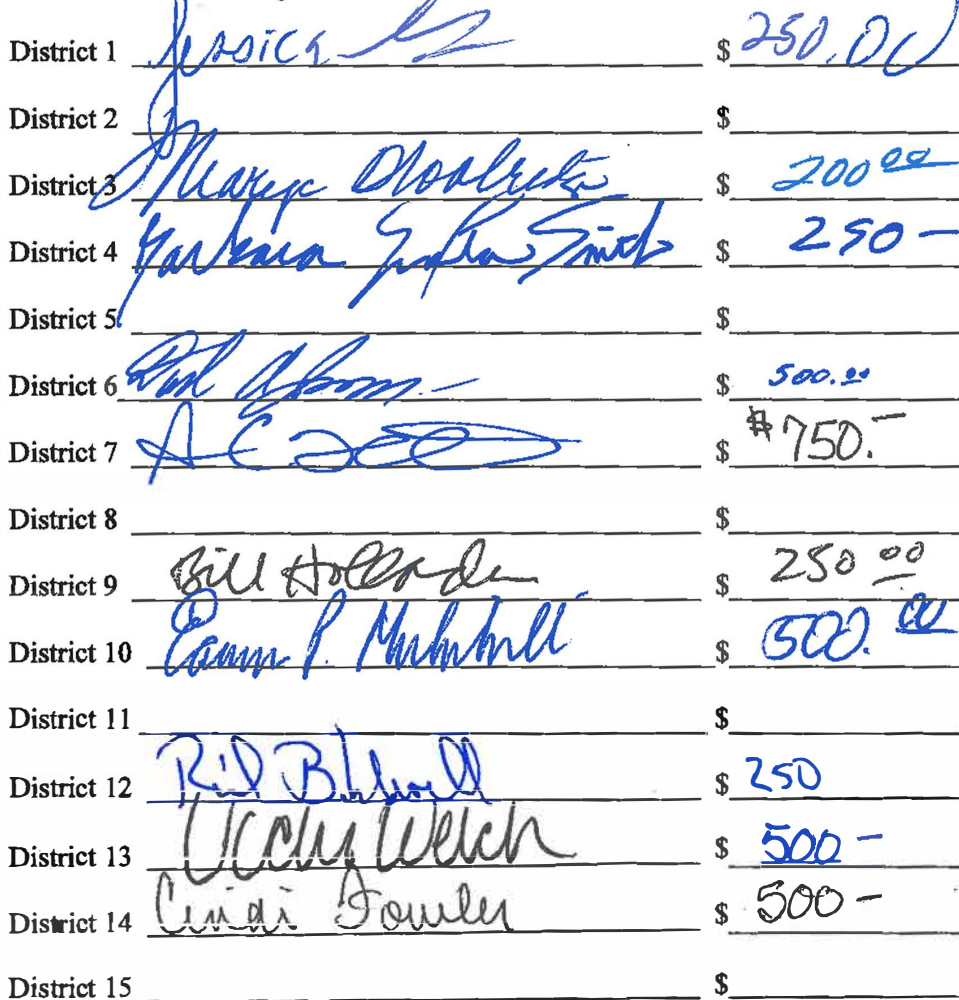 District 1 Jessica $ 250.00
District 2 $
District 3 $ 200 00
District 4 Barbara Sexton Smith $ 250 —
District 5 $
District 6 $ 500.00
District 7 $ $750.—
District 8 $
District 9 Bill Hollander $ 250 00
District 10 P. $ 500. 00
District 11 $
District 12 $ 250
District 13 Vicki Welch $ 500 —
District 14 Cindi Fowler $ 500 —
District 15 $